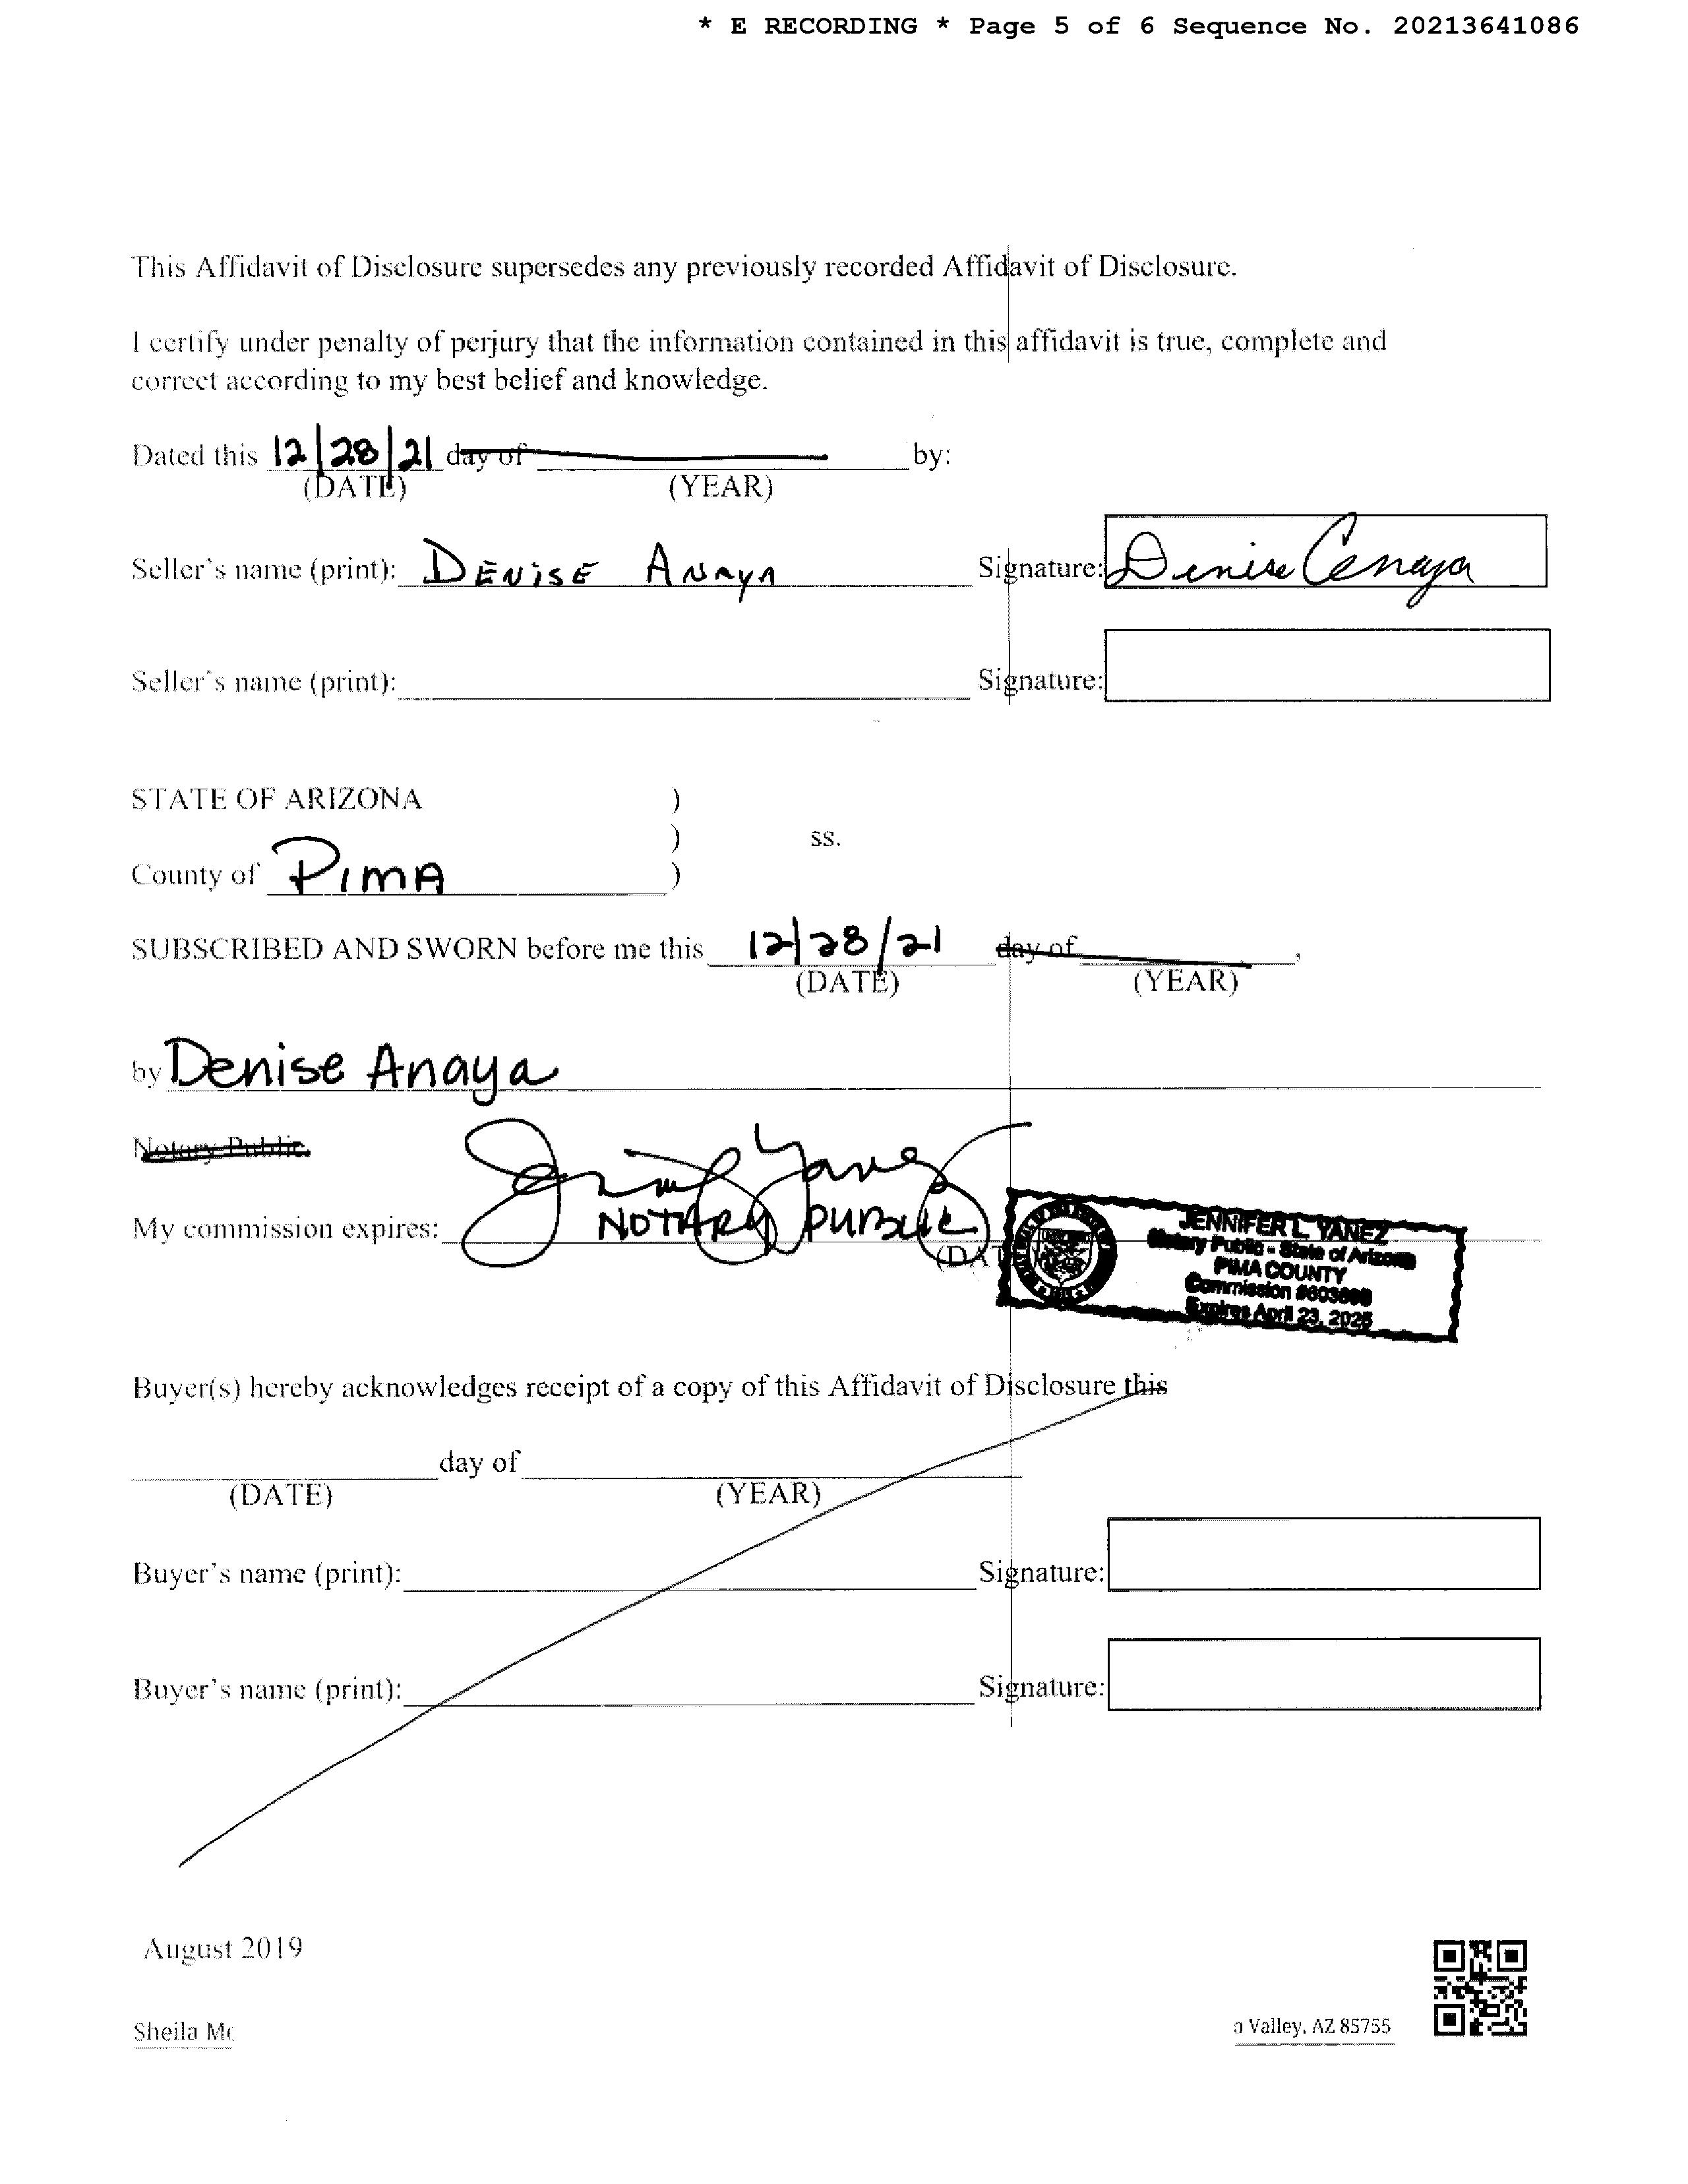 * E RECORDING * Page 5 of 6 Sequence No. 20213641086
This Affidavit of Disclosure supersedes any previously recorded Affidavit of Disclosure.
I certify under penalty of perjury that the information contained in this affidavit is true, complete and
correct according to my best belief and knowledge.
Dated this 12/28/21 day of by:
(DATE) (YEAR)
Seller's name (print): DENiSE ANAYA Signature: Denise Anaya
Seller's name (print): Signature:
STATE OF ARIZONA )
) ss.
County of PIMA )
SUBSCRIBED AND SWORN before me this 12/28/21 day of ,
(DATE) (YEAR)
by Denise Anaya
Notary Public
My commission expires: NOTARY PUBLIC
JENNIFER L. YANEZ
Notary Public - State of Arizona
PIMA COUNTY
Commission
Expires April 23, 2025
Buyer(s) hereby acknowledges receipt of a copy of this Affidavit of Disclosure this
day of
(DATE) (YEAR)
Buyer's name (print): Signature:
Buyer's name (print): Signature:
August 2019
Sheila Mc
Valley, AZ 85755